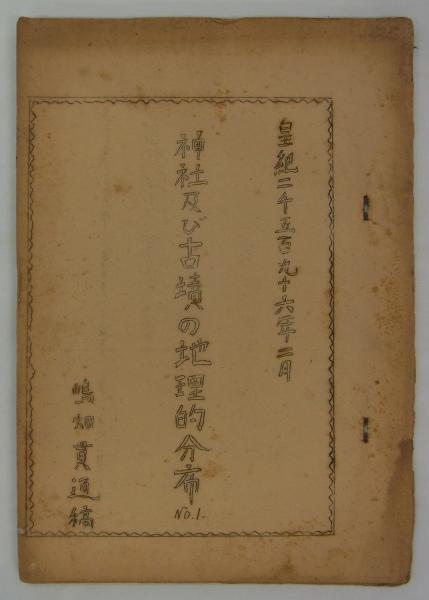 皇紀二千五百九十六年二月
神社及び古墳の地理的分布
No.1.
嶋畑貫通稿